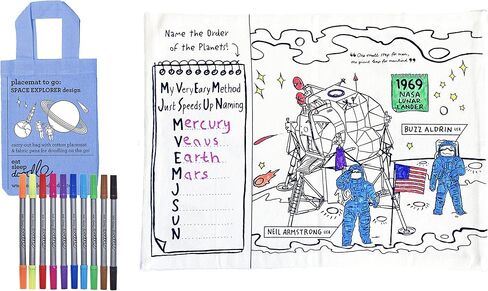 placemat to go:
SPACE EXPLORER design
carry-out bag with cotton placemat
& fabric pens for doodling on the go!
eat
sleep
doodle
Name the Order
of the Planets!
My Very Easy Method
Just Speeds Up Naming
Mercury
Venus
Earth
Mars
M
V
E
M
J
S
U
N
"One small step for man,
one giant leap for mankind."
1969
NASA
LUNAR
LANDER
BUZZ ALDRIN USA
NEIL ARMSTRONG USA